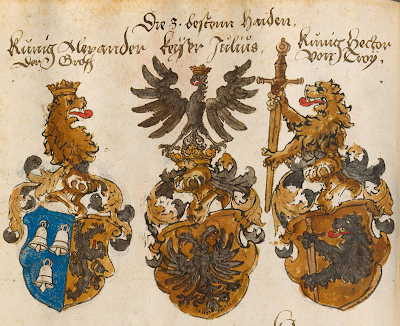 Die 3. bestenn Haiden.
Künig Alexander
Der Groß
keiser Julius.
Künig Hector
von Troy.